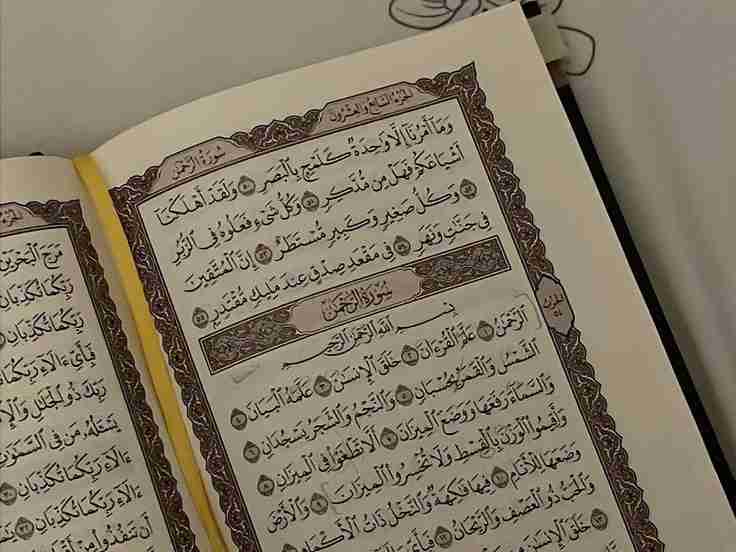 الجزء السابع والعشرون
سورة الرحمن
وَمَآ أَمْرُنَآ إِلَّا وَٰحِدَةٌ كَلَمْحٍۭ بِٱلْبَصَرِ ٥٠ وَلَقَدْ أَهْلَكْنَآ
أَشْيَاعَكُمْ فَهَلْ مِن مُّدَّكِرٍ ٥١ وَكُلُّ شَىْءٍ فَعَلُوهُ فِى ٱلزُّبُرِ
٥٢ وَكُلُّ صَغِيرٍ وَكَبِيرٍ مُّسْتَطَرٌ ٥٣ إِنَّ ٱلْمُتَّقِينَ
فِى جَنَّٰتٍ وَنَهَرٍ ٥٤ فِى مَقْعَدِ صِدْقٍ عِندَ مَلِيكٍ مُّقْتَدِرٍۭ ٥٥
سورة الرحمن
بِسْمِ ٱللَّهِ ٱلرَّحْمَٰنِ ٱلرَّحِيمِ
ٱلرَّحْمَٰنُ ١ عَلَّمَ ٱلْقُرْءَانَ ٢ خَلَقَ ٱلْإِنسَٰنَ ٣ عَلَّمَهُ ٱلْبَيَانَ ٤
ٱلشَّمْسُ وَٱلْقَمَرُ بِحُسْبَانٍ ٥ وَٱلنَّجْمُ وَٱلشَّجَرُ يَسْجُدَانِ ٦
وَٱلسَّمَآءَ رَفَعَهَا وَوَضَعَ ٱلْمِيزَانَ ٧ أَلَّا تَطْغَوْا۟ فِى ٱلْمِيزَانِ ٨
وَأَقِيمُوا۟ ٱلْوَزْنَ بِٱلْقِسْطِ وَلَا تُخْسِرُوا۟ ٱلْمِيزَانَ ٩ وَٱلْأَرْضَ
وَضَعَهَا لِلْأَنَامِ ١٠ فِيهَا فَٰكِهَةٌ وَٱلنَّخْلُ ذَاتُ ٱلْأَكْمَامِ
١١ وَٱلْحَبُّ ذُو ٱلْعَصْفِ وَٱلرَّيْحَانُ ١٢ فَبِأَىِّ
١٣ خَلَقَ ٱلْإِنسَٰنَ
الحزب ٥٤
الجزء
مَرَجَ ٱلْبَحْرَيْنِ
رَبِّكُمَا تُكَذِّبَانِ
رَبِّكُمَا تُكَذِّبَانِ
فَبِأَىِّ ءَالَآءِ رَبِّكُمَا تُكَذِّبَانِ
رَبِّكَ ذُو ٱلْجَلَٰلِ وَٱلْإ
يَسْـَٔلُهُۥ مَن فِى ٱلسَّمَٰوَٰتِ
ءَالَآءِ رَبِّكُمَا تُكَذِّبَانِ
ءَالَآءِ رَبِّكُمَا تُكَذِّبَانِ
أَن تَنفُذُوا۟ مِنْ